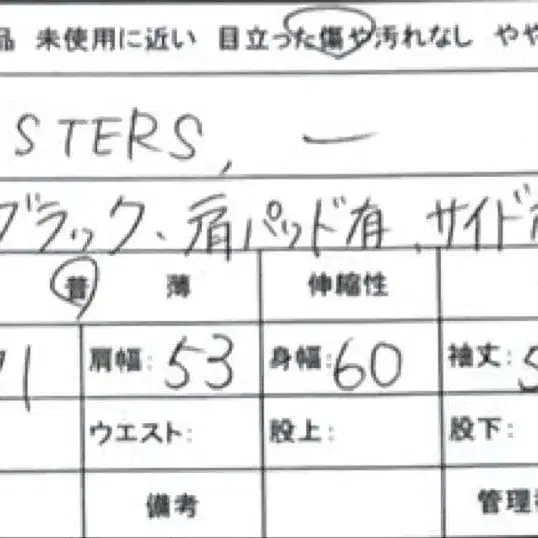 品 未使用に近い 目立った傷や汚れなし やや
STERS, ー
ブラック、肩パッド有、サイド
普 薄 伸縮性
71 肩幅: 53 身幅: 60 袖丈: 5
ウエスト: 股上: 股下:
備考 管理